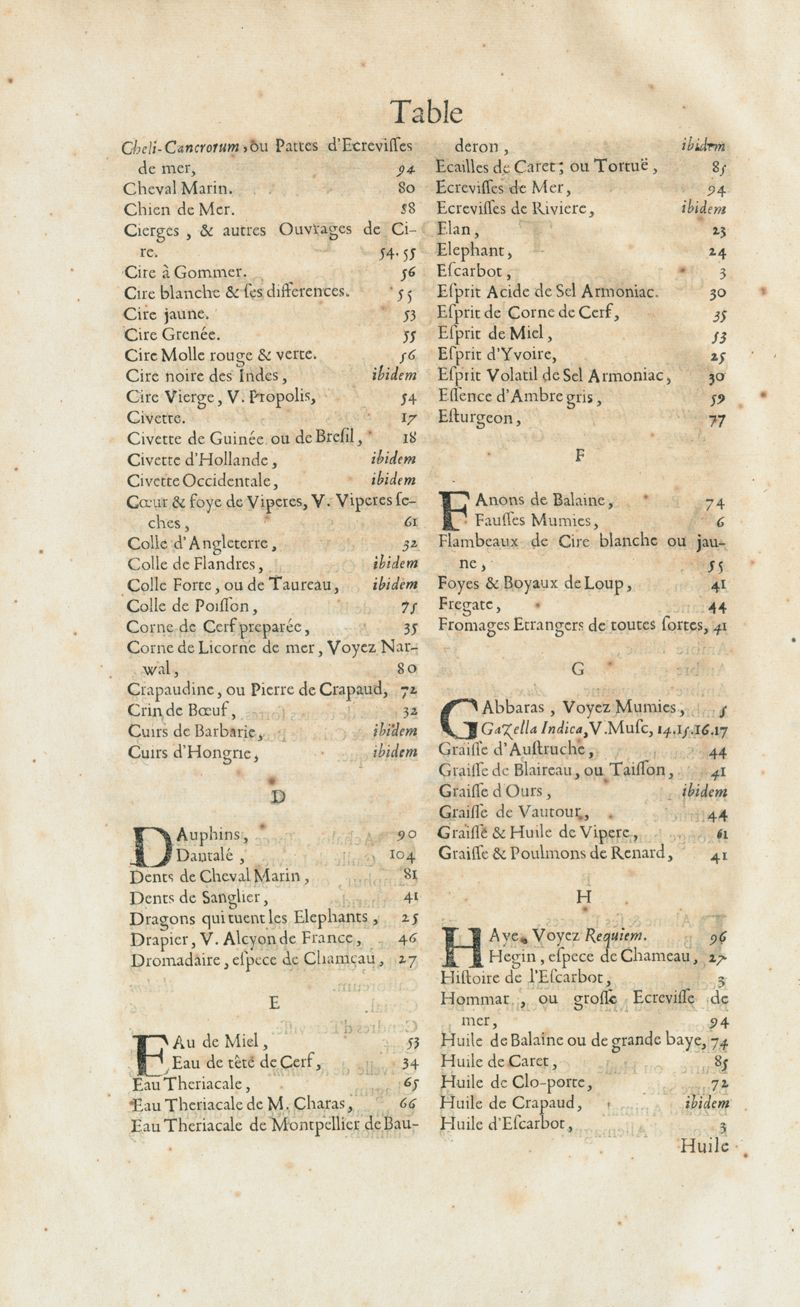 Table
Cheli-Cancrorum, ou Pattes d'Ecreviſſes
de mer, 94
Cheval Marin. 80
Chien de Mer. 58
Cierges, & autres Ouvrages de Ci-
re. 54.55
Cire à Gommer. 56
Cire blanche & ſes differences. 55
Cire jaune. 53
Cire Grenée. 55
Cire Molle rouge & verte. 56
Cire noire des Indes, ibidem
Cire Vierge, V. Propolis, 54
Civette. 17
Civette de Guinée ou de Breſil, 18
Civette d'Hollande, ibidem
Civette Occidentale, ibidem
Cœur & foye de Viperes, V. Viperes ſe-
ches, 61
Colle d'Angleterre, 32
Colle de Flandres, ibidem
Colle Forte, ou de Taureau, ibidem
Colle de Poiſſon, 75
Corne de Cerf preparée, 35
Corne de Licorne de mer, Voyez Nar-
wal, 80
Crapaudine, ou Pierre de Crapaud, 72
Crin de Bœuf, 32
Cuirs de Barbarie, ibidem
Cuirs d'Hongrie, ibidem
D
DAuphins, 90
Dautalé, 104
Dents de Cheval Marin, 81
Dents de Sanglier, 41
Dragons qui tuent les Elephants, 25
Drapier, V. Alcyon de France, 46
Dromadaire, eſpece de Chameau, 27
E
EAu de Miel, 53
Eau de tête de Cerf, 34
Eau Theriacale, 65
Eau Theriacale de M. Charas, 66
Eau Theriacale de Montpellier de Bau-
deron, ibidem
Ecailles de Caret; ou Tortuë, 85
Ecreviſſes de Mer, 94
Ecreviſſes de Riviere, ibidem
Elan, 23
Elephant, 24
Eſcarbot, 3
Eſprit Acide de Sel Armoniac. 30
Eſprit de Corne de Cerf, 35
Eſprit de Miel, 53
Eſprit d'Yvoire, 25
Eſprit Volatil de Sel Armoniac, 30
Eſſence d'Ambre gris, 59
Eſturgeon, 77
F
FAnons de Balaine, 74
Fauſſes Mumies, 6
Flambeaux de Cire blanche ou jau-
ne, 55
Foyes & Boyaux de Loup, 41
Fregate, 44
Fromages Etrangers de toutes ſortes, 41
G
GAbbaras, Voyez Mumies, 5
Gazella Indica, V. Muſc, 14.15.16.17
Graiſſe d'Auſtruche, 44
Graiſſe de Blaireau, ou Taiſſon, 41
Graiſſe d Ours, ibidem
Graiſſe de Vautour, 44
Graiſſe & Huile de Vipere, 61
Graiſſe & Poulmons de Renard, 41
H
HAye, Voyez Requiem. 96
Hegin, eſpece de Chameau, 27
Hiſtoire de l'Eſcarbot, 3
Hommar, ou groſſe Ecreviſſe de
mer, 94
Huile de Balaine ou de grande baye, 74
Huile de Caret, 85
Huile de Clo-porte, 72
Huile de Crapaud, ibidem
Huile d'Eſcarbot, 3
Huile